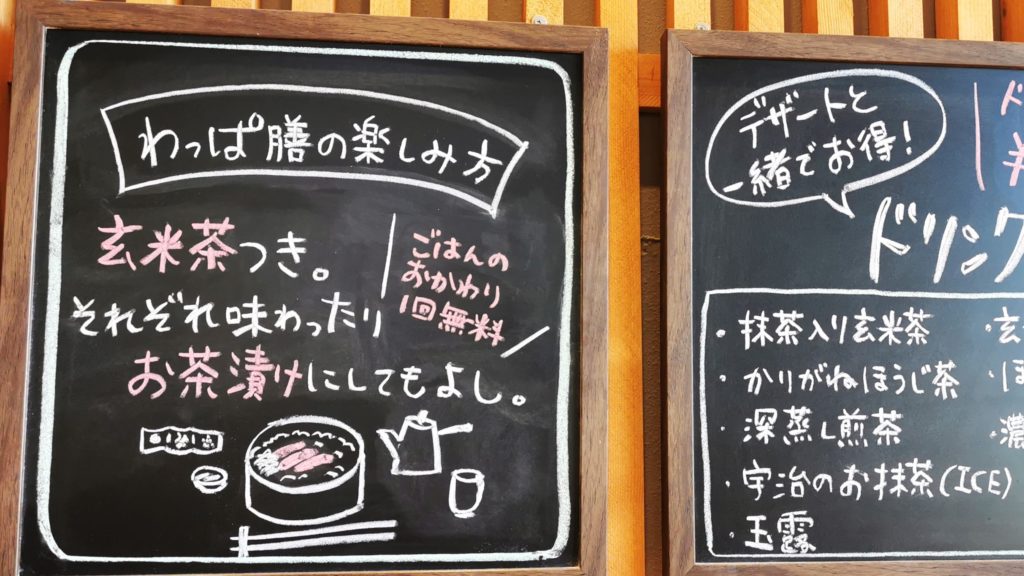 わっぱ膳の楽しみ方
玄米茶つき。
ごはんの
おかわり
1回無料
それぞれ味わったり
お茶漬けにしてもよし。
デザートと
一緒でお得!
ドリンク
・抹茶入り玄米茶
・かりがねほうじ茶
・深蒸し煎茶
・宇治のお抹茶(ICE)
・玉露
・玄
・ほ
・濃